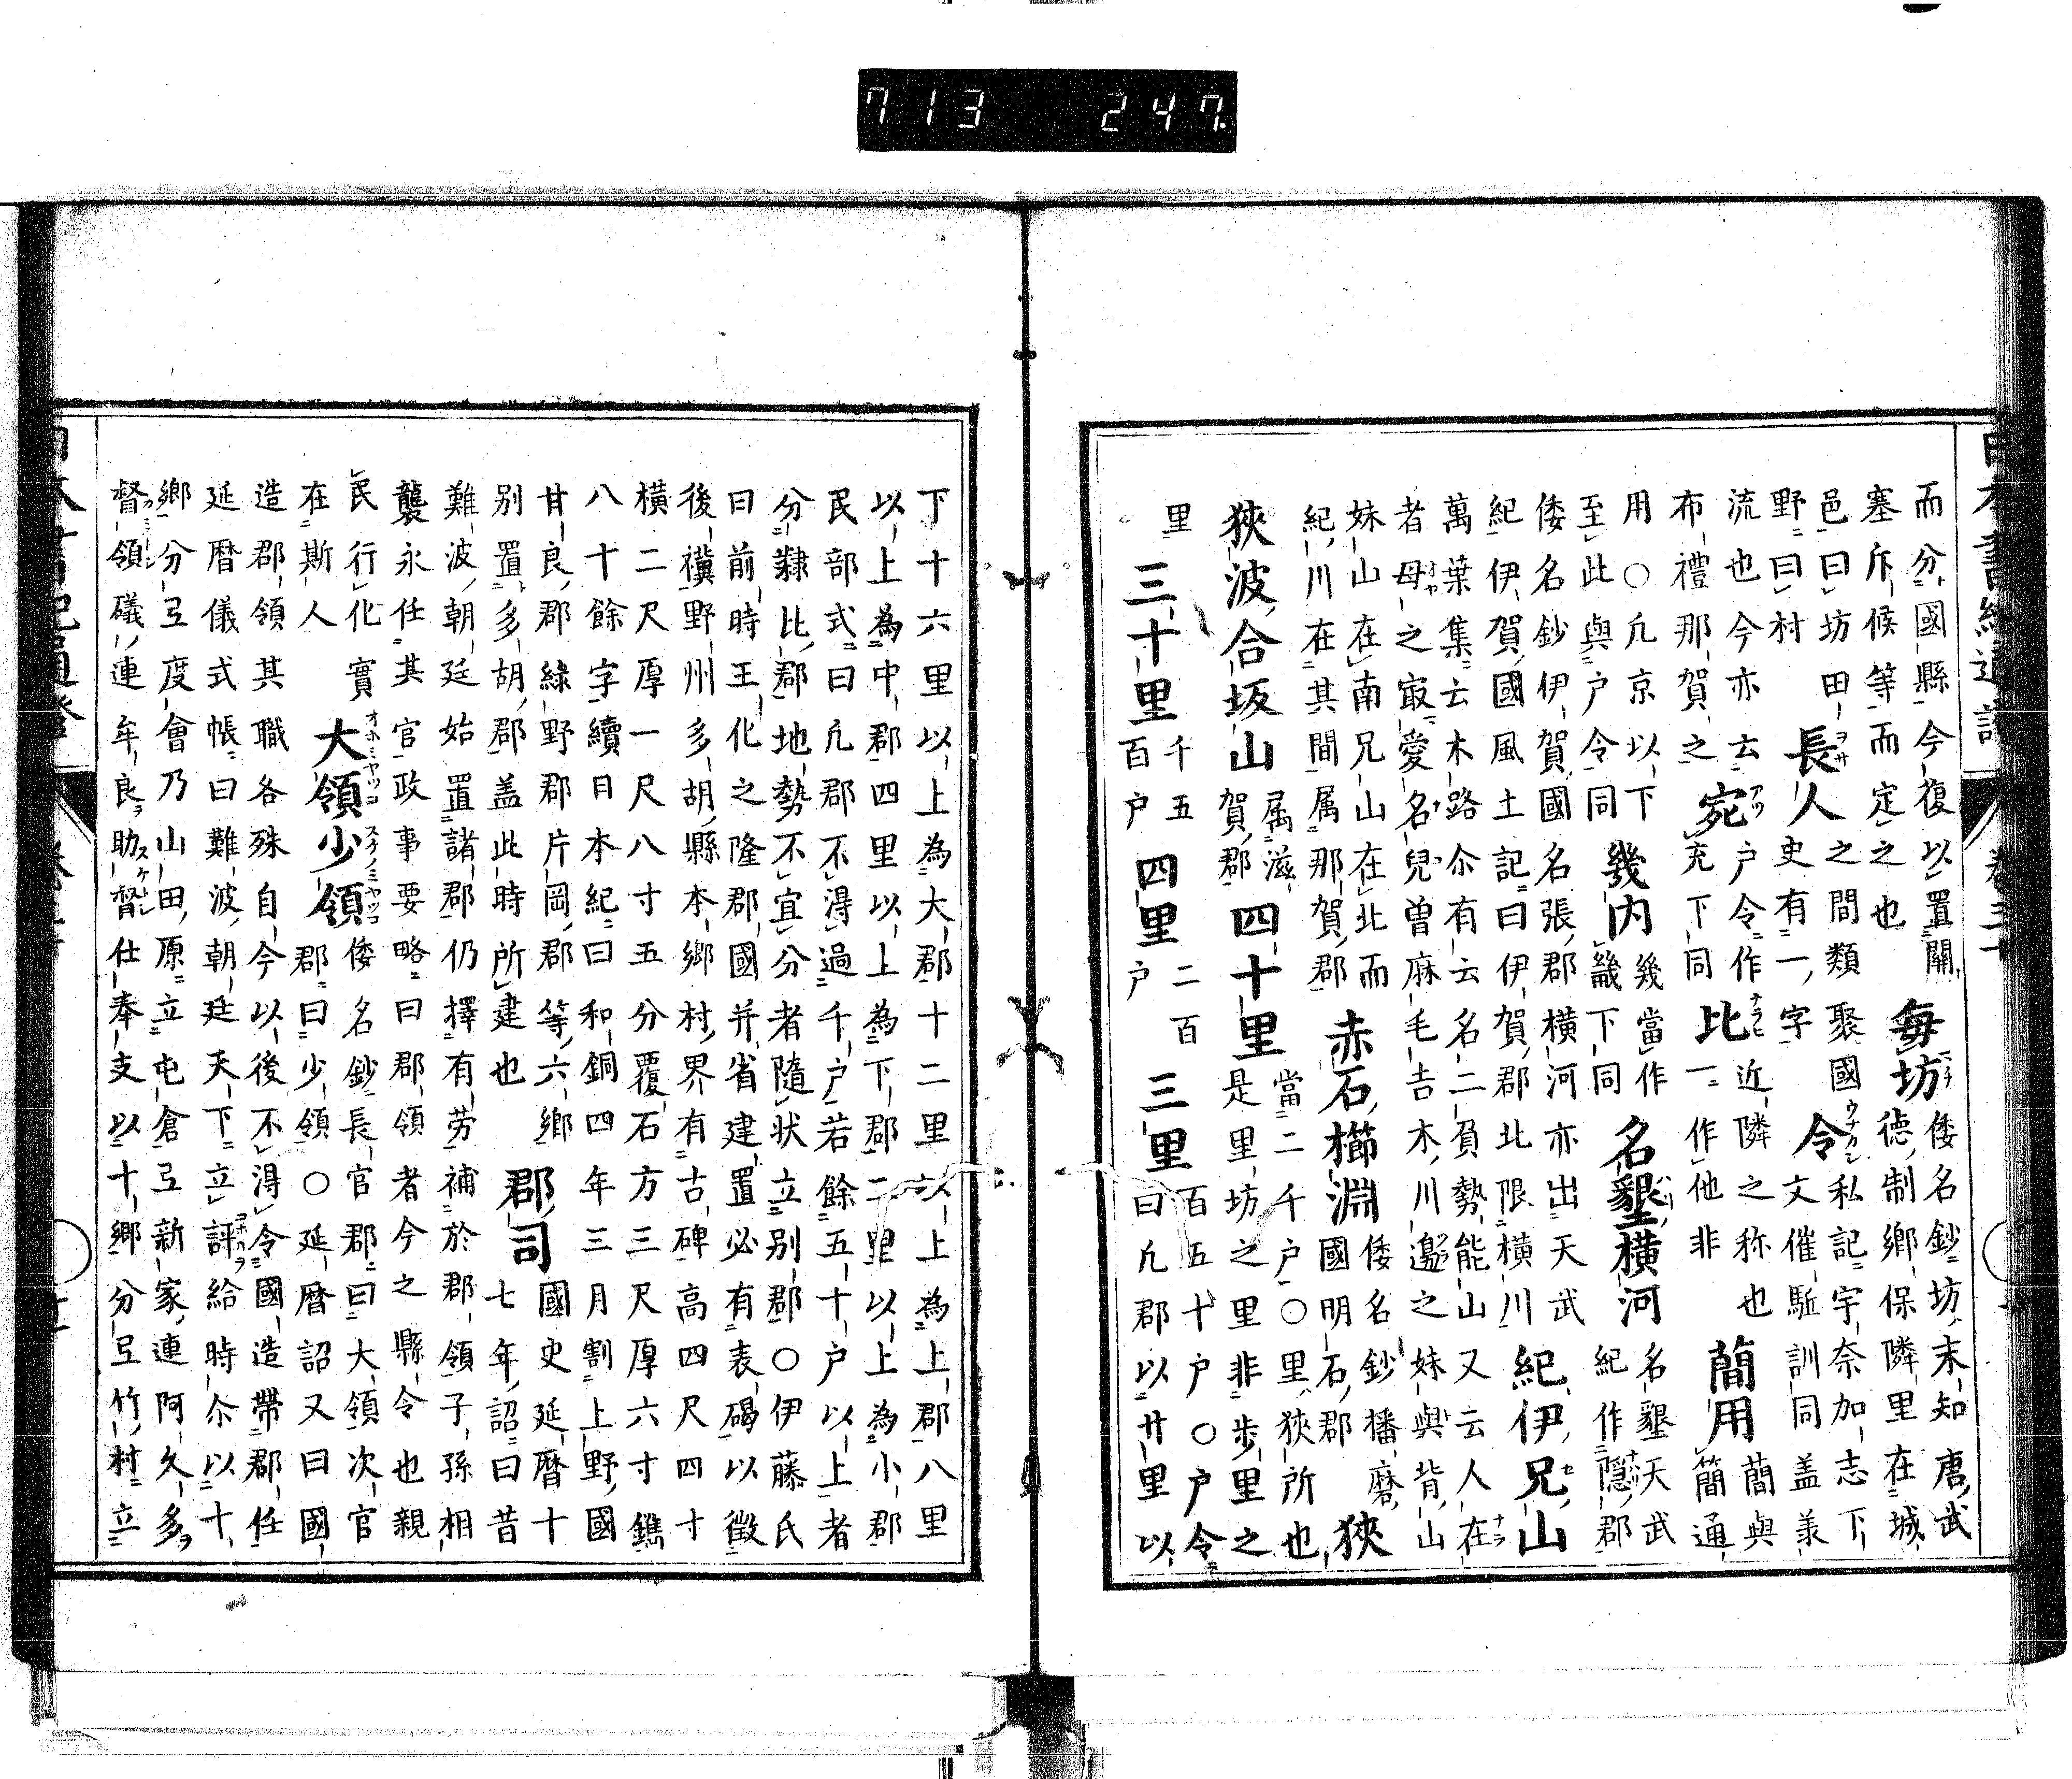 713 247.
而分國縣今復以置關
塞斥候等而定之也
每坊
倭名鈔坊末知唐武
德制鄉保隣里在城
邑曰坊田之間類聚國
野曰村
長人
史有一字
令
私記宇奈加志下
文催駈訓同盖義
流也今亦云
布禮那賀之
宛
戸令作
充下同
比
近隣之称也
一作他非
簡用
蕳與
簡通
用○凡京以下
至此與戸令同
幾内
幾當作
畿下同
名墾横河
名墾天武
紀作隱郡
倭名鈔伊賀國名張郡横河亦出天武
紀伊賀國風土記曰伊賀郡北限横川
紀伊兄山
萬葉集云木路尓有云名二負勢能山又云人在
者母之寂愛名兒曽麻毛吉木川邉之妹與背山
妹山在南兄山在北而
紀川在其間属那賀郡
赤石櫛淵
倭名鈔播磨
國明石郡
狹
狹波合坂山
属滋
賀郡
四十里
當二千戸○里狹所也
是里坊之里非步里之
里
三十里
千五
百戸
四里
二百
戸
三里
百五十戸○戸令
曰凡郡以廿里以
下十六里以上為大郡十二里以上為上郡八里
以上為中郡四里以上為下郡二里以上為小郡
民部式曰凡郡不得過千戸若餘五十戸以上者
分隸比郡地勢不宜分者隨状立别郡○伊藤氏
曰前時王化之隆郡國并省建置必有表碣以徵
後禩野州多胡縣本鄉村界有古碑高四尺四寸
横二尺厚一尺八寸五分覆石方三尺厚六寸鐫
八十餘字續日本紀曰和銅四年三月割上野國
甘良郡綠野郡片岡郡等六鄉
别置多胡郡盖此時所建也
郡司
國史延暦十
七年詔曰昔
難波朝廷始置諸郡仍擇有労補於郡領子孫相
襲永任其官政事要略曰郡領者今之縣令也親
民行化實
在斯人
大領少領
倭名鈔長官郡曰大領次官
郡曰少領○延暦詔又曰國
造郡領其職各殊自今以後不得令國造帶郡任
延暦儀式帳曰難波朝廷天下立評給時尓以十
鄉分弖度會乃山田原立屯倉弖新家連阿久多
督領礒連牟良助督仕奉支以十鄉分弖竹村立